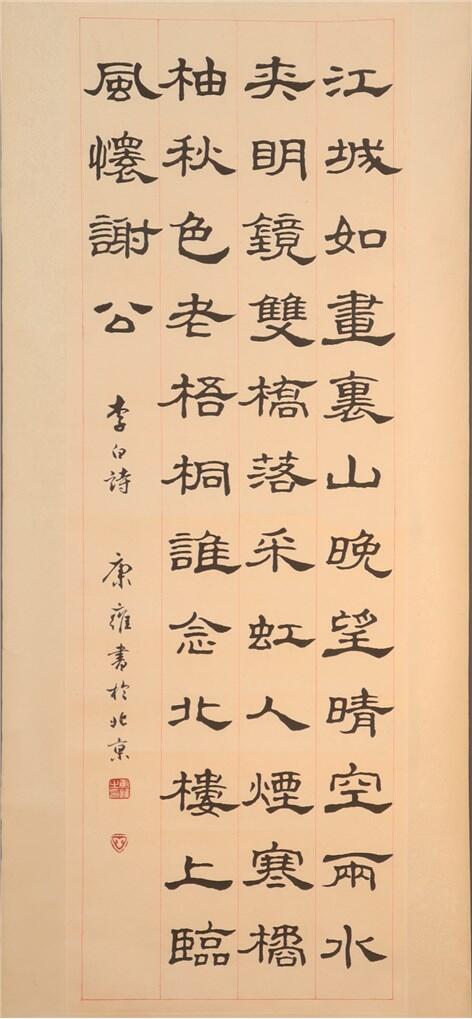 江城如畫裏山晚望晴空兩水
夾明鏡雙橋落采虹人煙寒橘
柚秋色老梧桐誰念北樓上臨
風懷謝公
李白詩
康雍書於北京